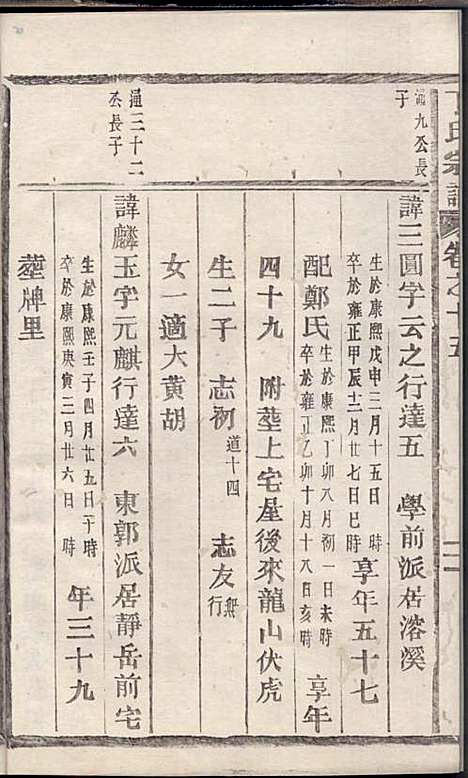 丁氏宗譜 卷之十五
通九公長子
諱三圓字云之行達五 學前派居溶溪
生於康熙戊申二月十五日 時
卒於雍正甲辰十二月廿七日巳時
享年五十七
配鄭氏
生於康熙丁卯八月初一日未時
卒於雍正乙卯十月十八日亥時
享年
四十九 附塟上宅屋後來龍山伏虎
生二子 志初 道十四 志友 無行
女一適大黄胡
通三十二公長子
諱麟玉字元麒行達六 東郭派居靜岳前宅
生於康熙壬子四月廿五日午時
卒於康熙庚寅三月廿六日 時
年三十九
塟牌里